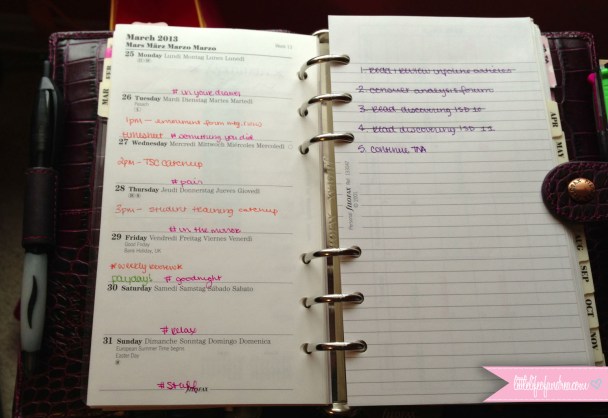 March 2013
Mars März Marzo Marzo
Week 13
25 Monday Lundi Montag Lunes Lunedì
# in your dreams
26 Tuesday Mardi Dienstag Martes Martedì
1pm -
timesheet # something you did
27 Wednesday Mercredi Mittwoch Miércoles Mercoledì
2pm - TSC catchup
# pair
28 Thursday Jeudi Donnerstag Jueves Giovedì
3pm - student training catchup
# in the mirror
29 Friday Vendredi Freitag Viernes Venerdì
Good Friday
Bank Holiday, UK
*weekly review*
payday! # goodnight
30 Saturday Samedi Samstag Sábado Sabato
# relax
31 Sunday Dimanche Sonntag Domingo Domenica
European Summer Time begins
Easter Day
# stuff
filofax
1. Read
2. consult analysis forum
3. Read discovering ISD 10
4. Read discovering ISD 11
5. continue TNA
Personal filofax
MAR
APR
MAY
AUG
SEP
OCT
NOV